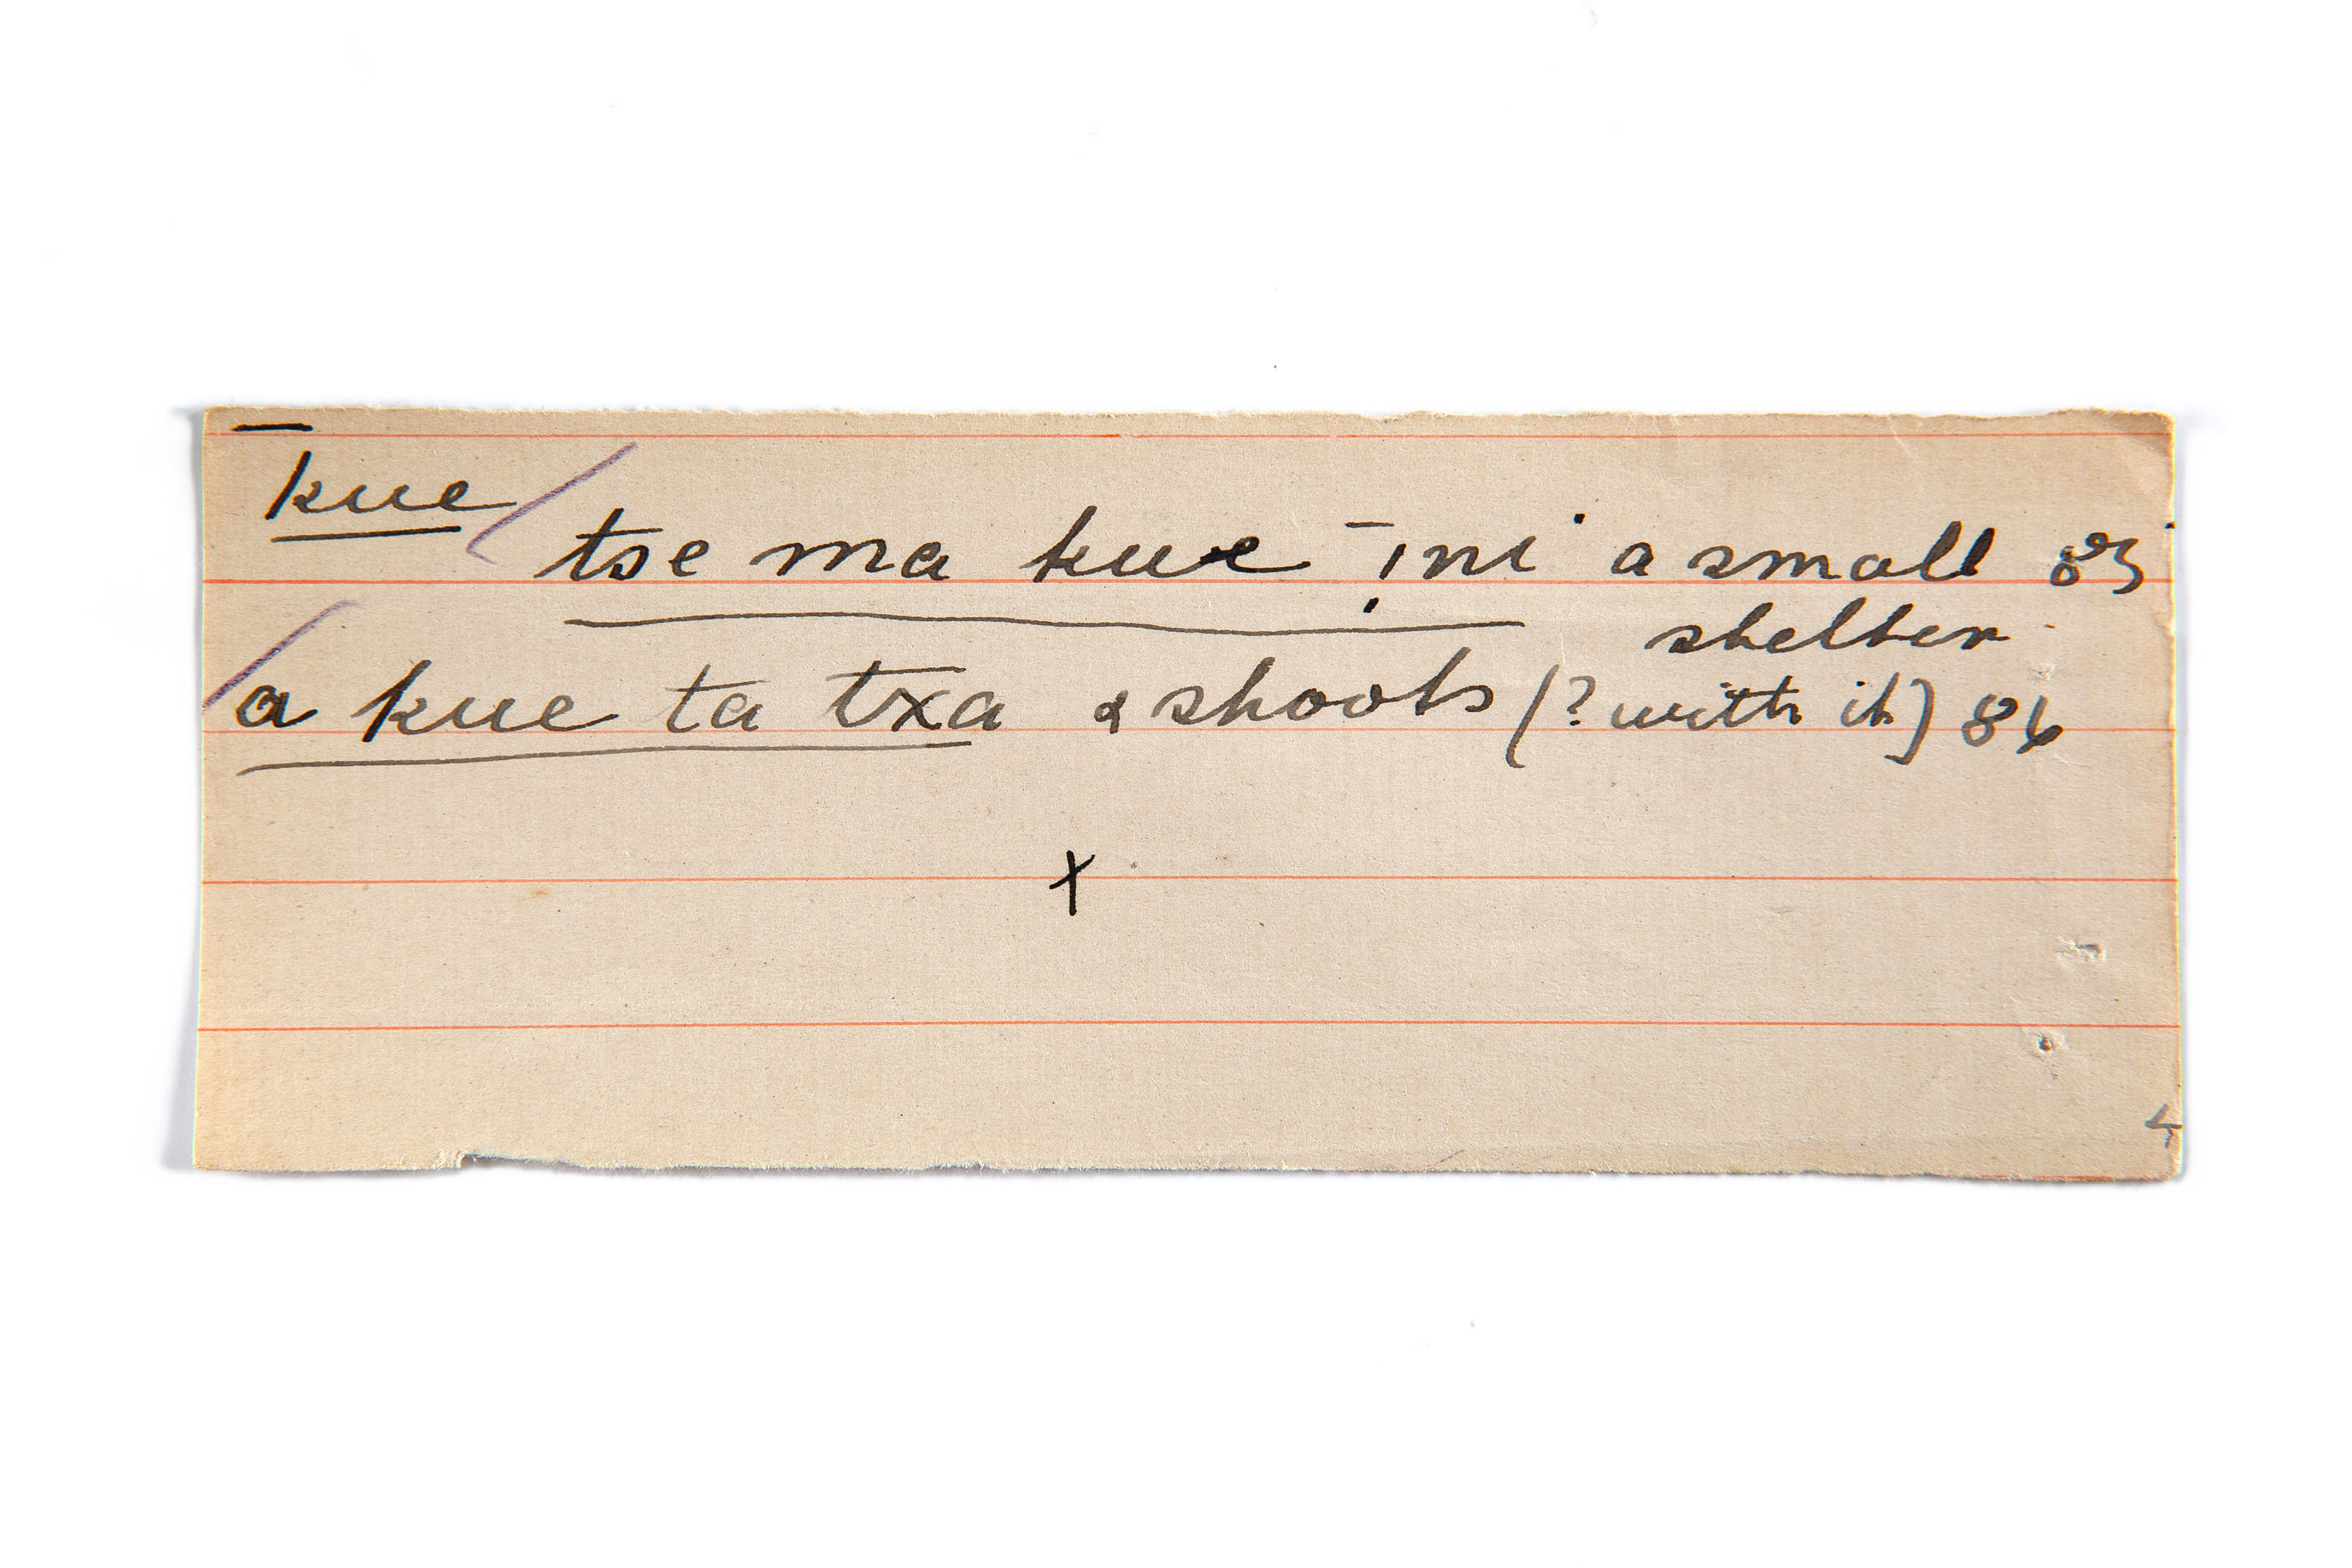 kue
tse ma kue ĩni a small 85
shelter
a kue ta txa & shoots (? with it) 86
x